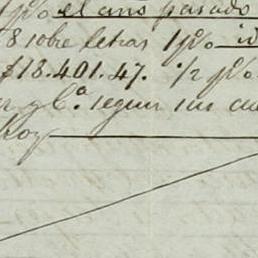 1 p% el año pasado
8 sobre letras 1 p% id
$18.401.47. ½ p%
y Cª segun su cu
hoy